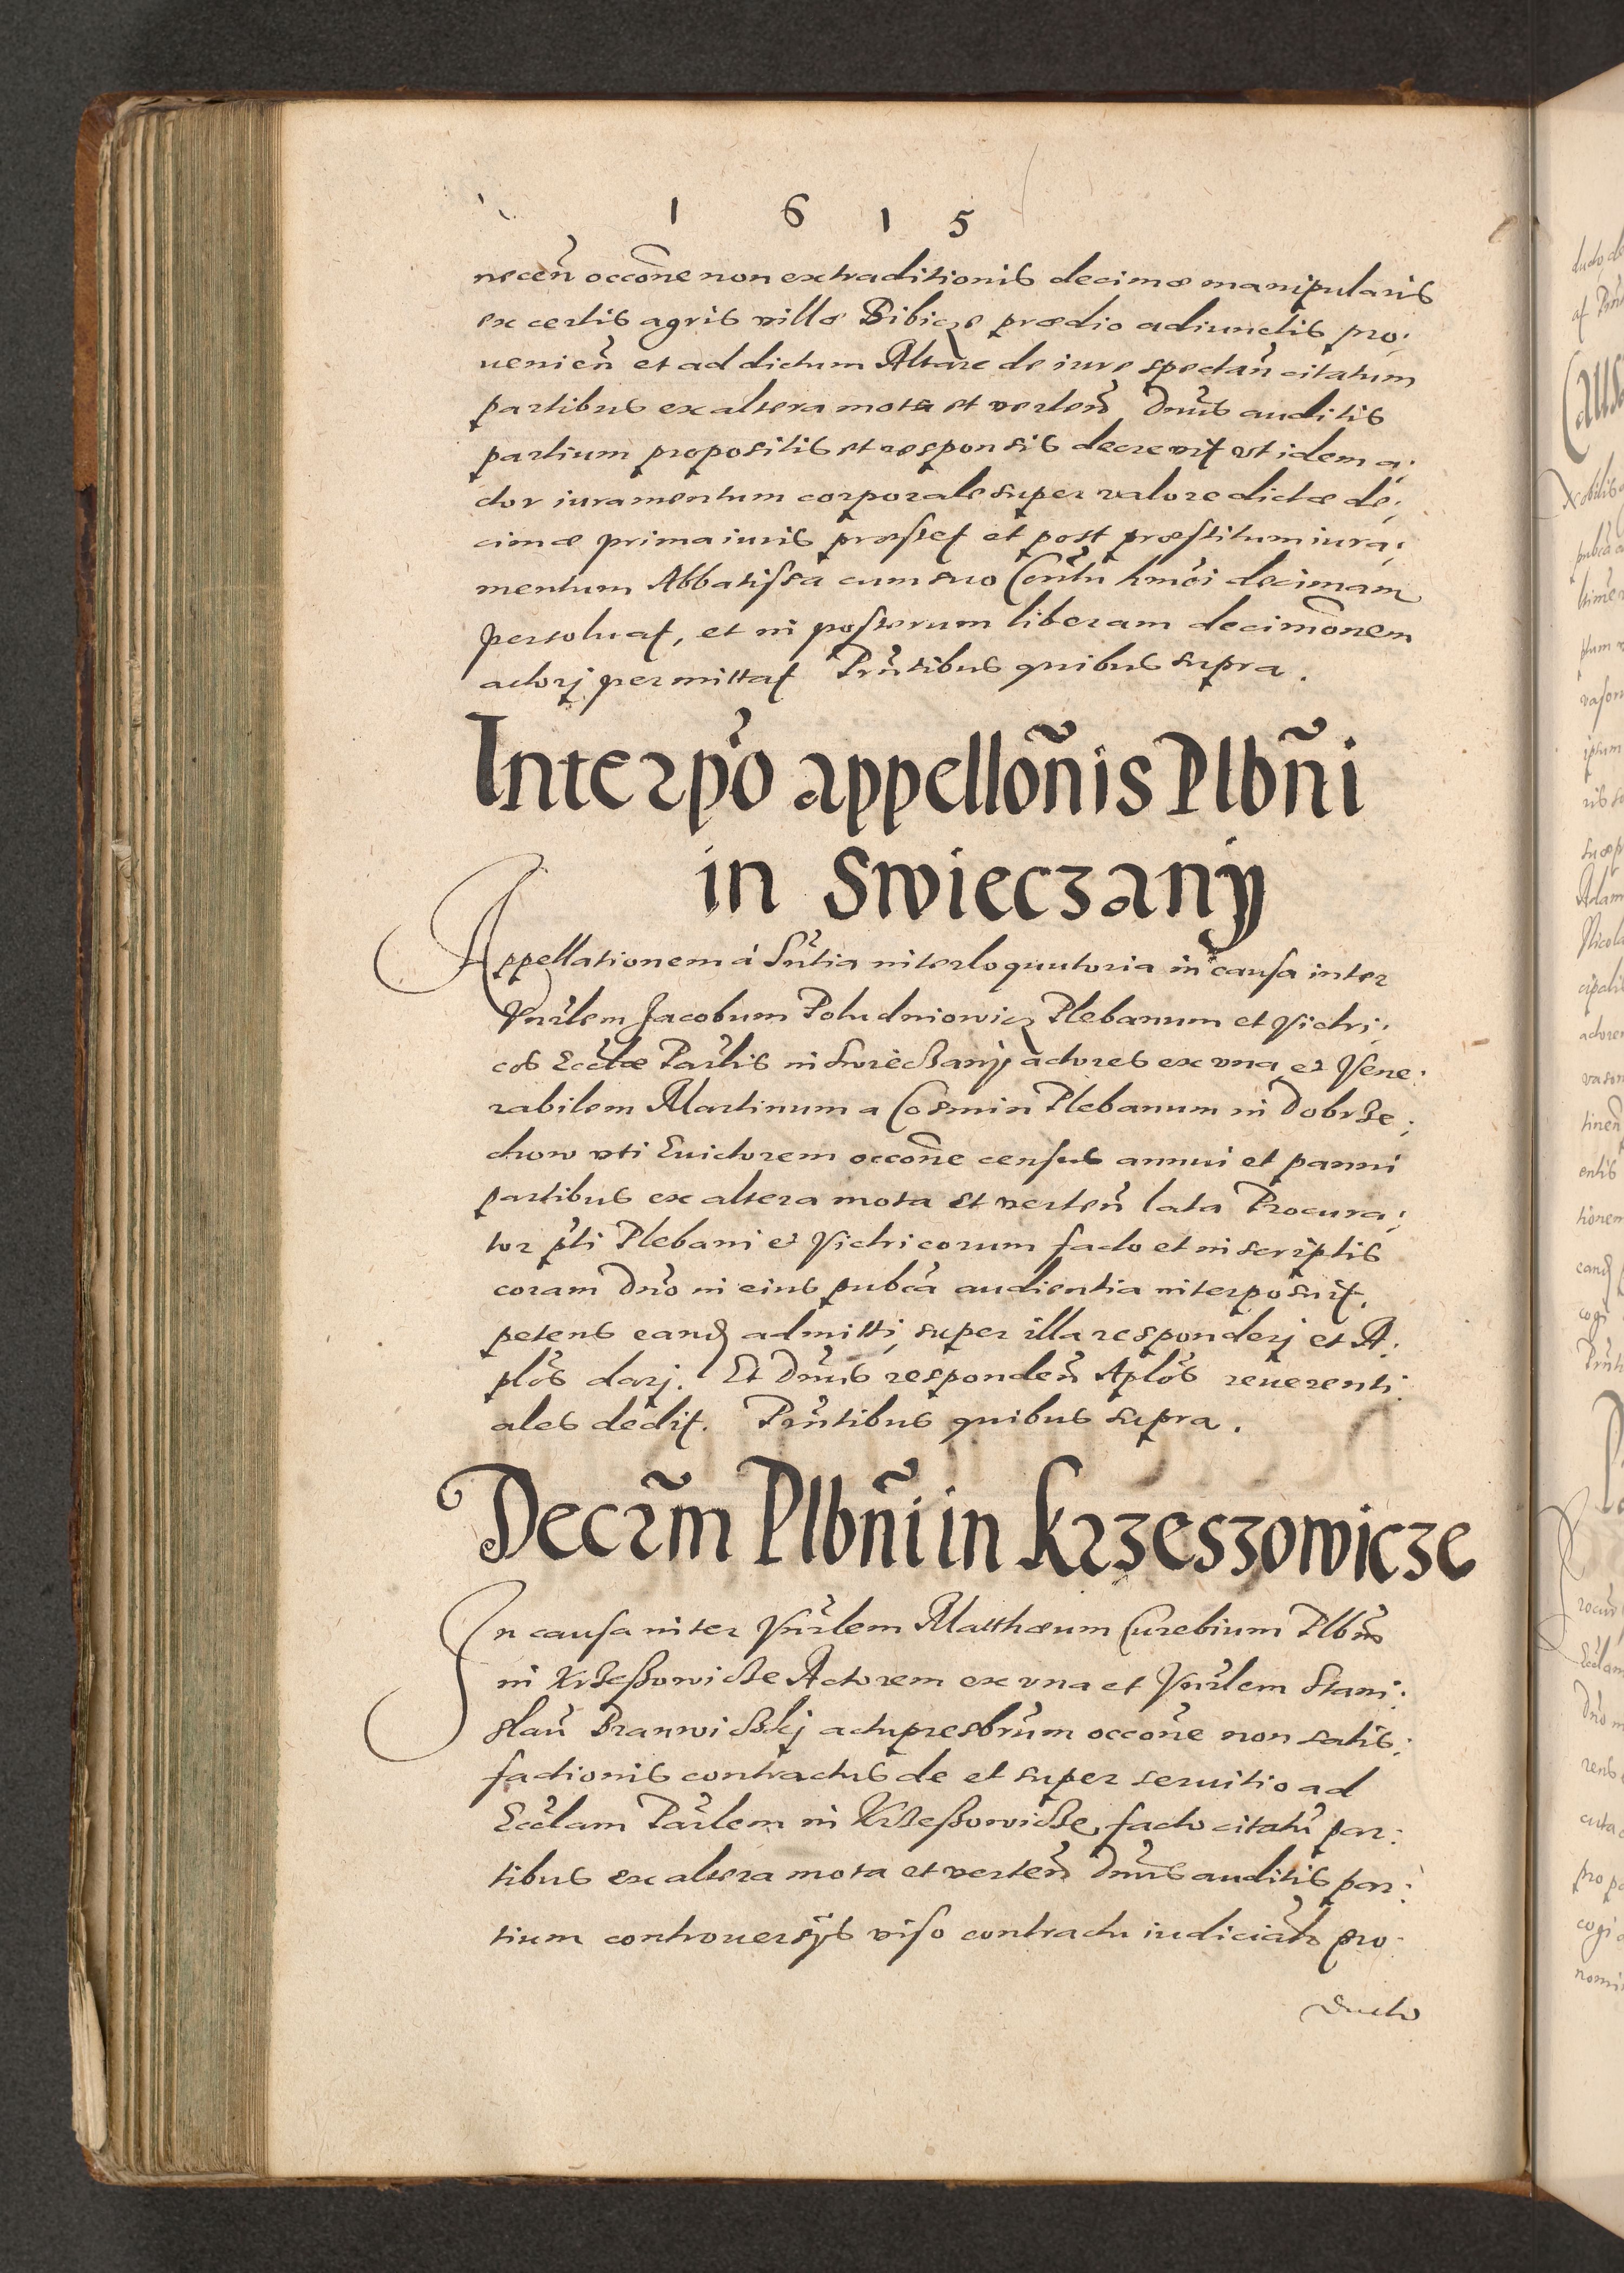 1 6 1 5
necen̄ occōne non extraditionis decimæ manipularis
ex certis agris villæ Bibicze prædio adiunctis pro:
uenien̄ et ad dictum Altare de iure spectan̄ citatum
partibus ex altera mota et verten̄ Dnūs auditis
partium propositis et responsis decrevit vt idem a:
ctor iuramentum corporale super valore dictæ de:
cimæ prima iuris præstet et post præstitum iura:
mentum Abbatissa cum suo Conūtu hmōi decimam
persoluat, et in posterum liberam decimōnem
actorj permittat Pn̄tibus quibus supra.
Interpō appellōnis Plbn̄i
in Swieczanÿ
Appellationem á Sn̄tia interloquutoria in causa inter
Vnr̄lem Jacobum Poludniowicz Plebanum et Victri:
cos Ecctæ Par̄lis in Swieczanÿ actores ex vna et Vene:
rabilem Martinum a Cosmin Plebanum in Dobrze:
chow vti Euictorem occōne census annui et panni
partibus ex altera mota et verten̄ lata Procura:
tor p̄ti Plebani et Victricorum facto et in scriptis
coram Dn̄o in eius pubca audientia interposuit,
petens eand̄ admitti, super illa responderj et A:
plōs darj. Et Dnūs responden̄ Aplōs reuerenti:
ales dedit. Pn̄tibus quibus supra.
Decr̄m Plbn̄i in Krzeszowicze
In causa inter Vnr̄lem Matthæum Curebium Plbn̄
in Krzeszowicze Actorem ex vna et Vnr̄lem Stani:
slaū Branwiczkj actu presbr̄um occōne non satis:
factionis contractus de et super seruitio ad
Eccl̄am Par̄lem in Krzeszowicze facto citatū par:
tibus ex altera mota et verten̄ Dnūs auditis par:
tium controuersÿs viso contractu iudicialr̄ pro:
ducto